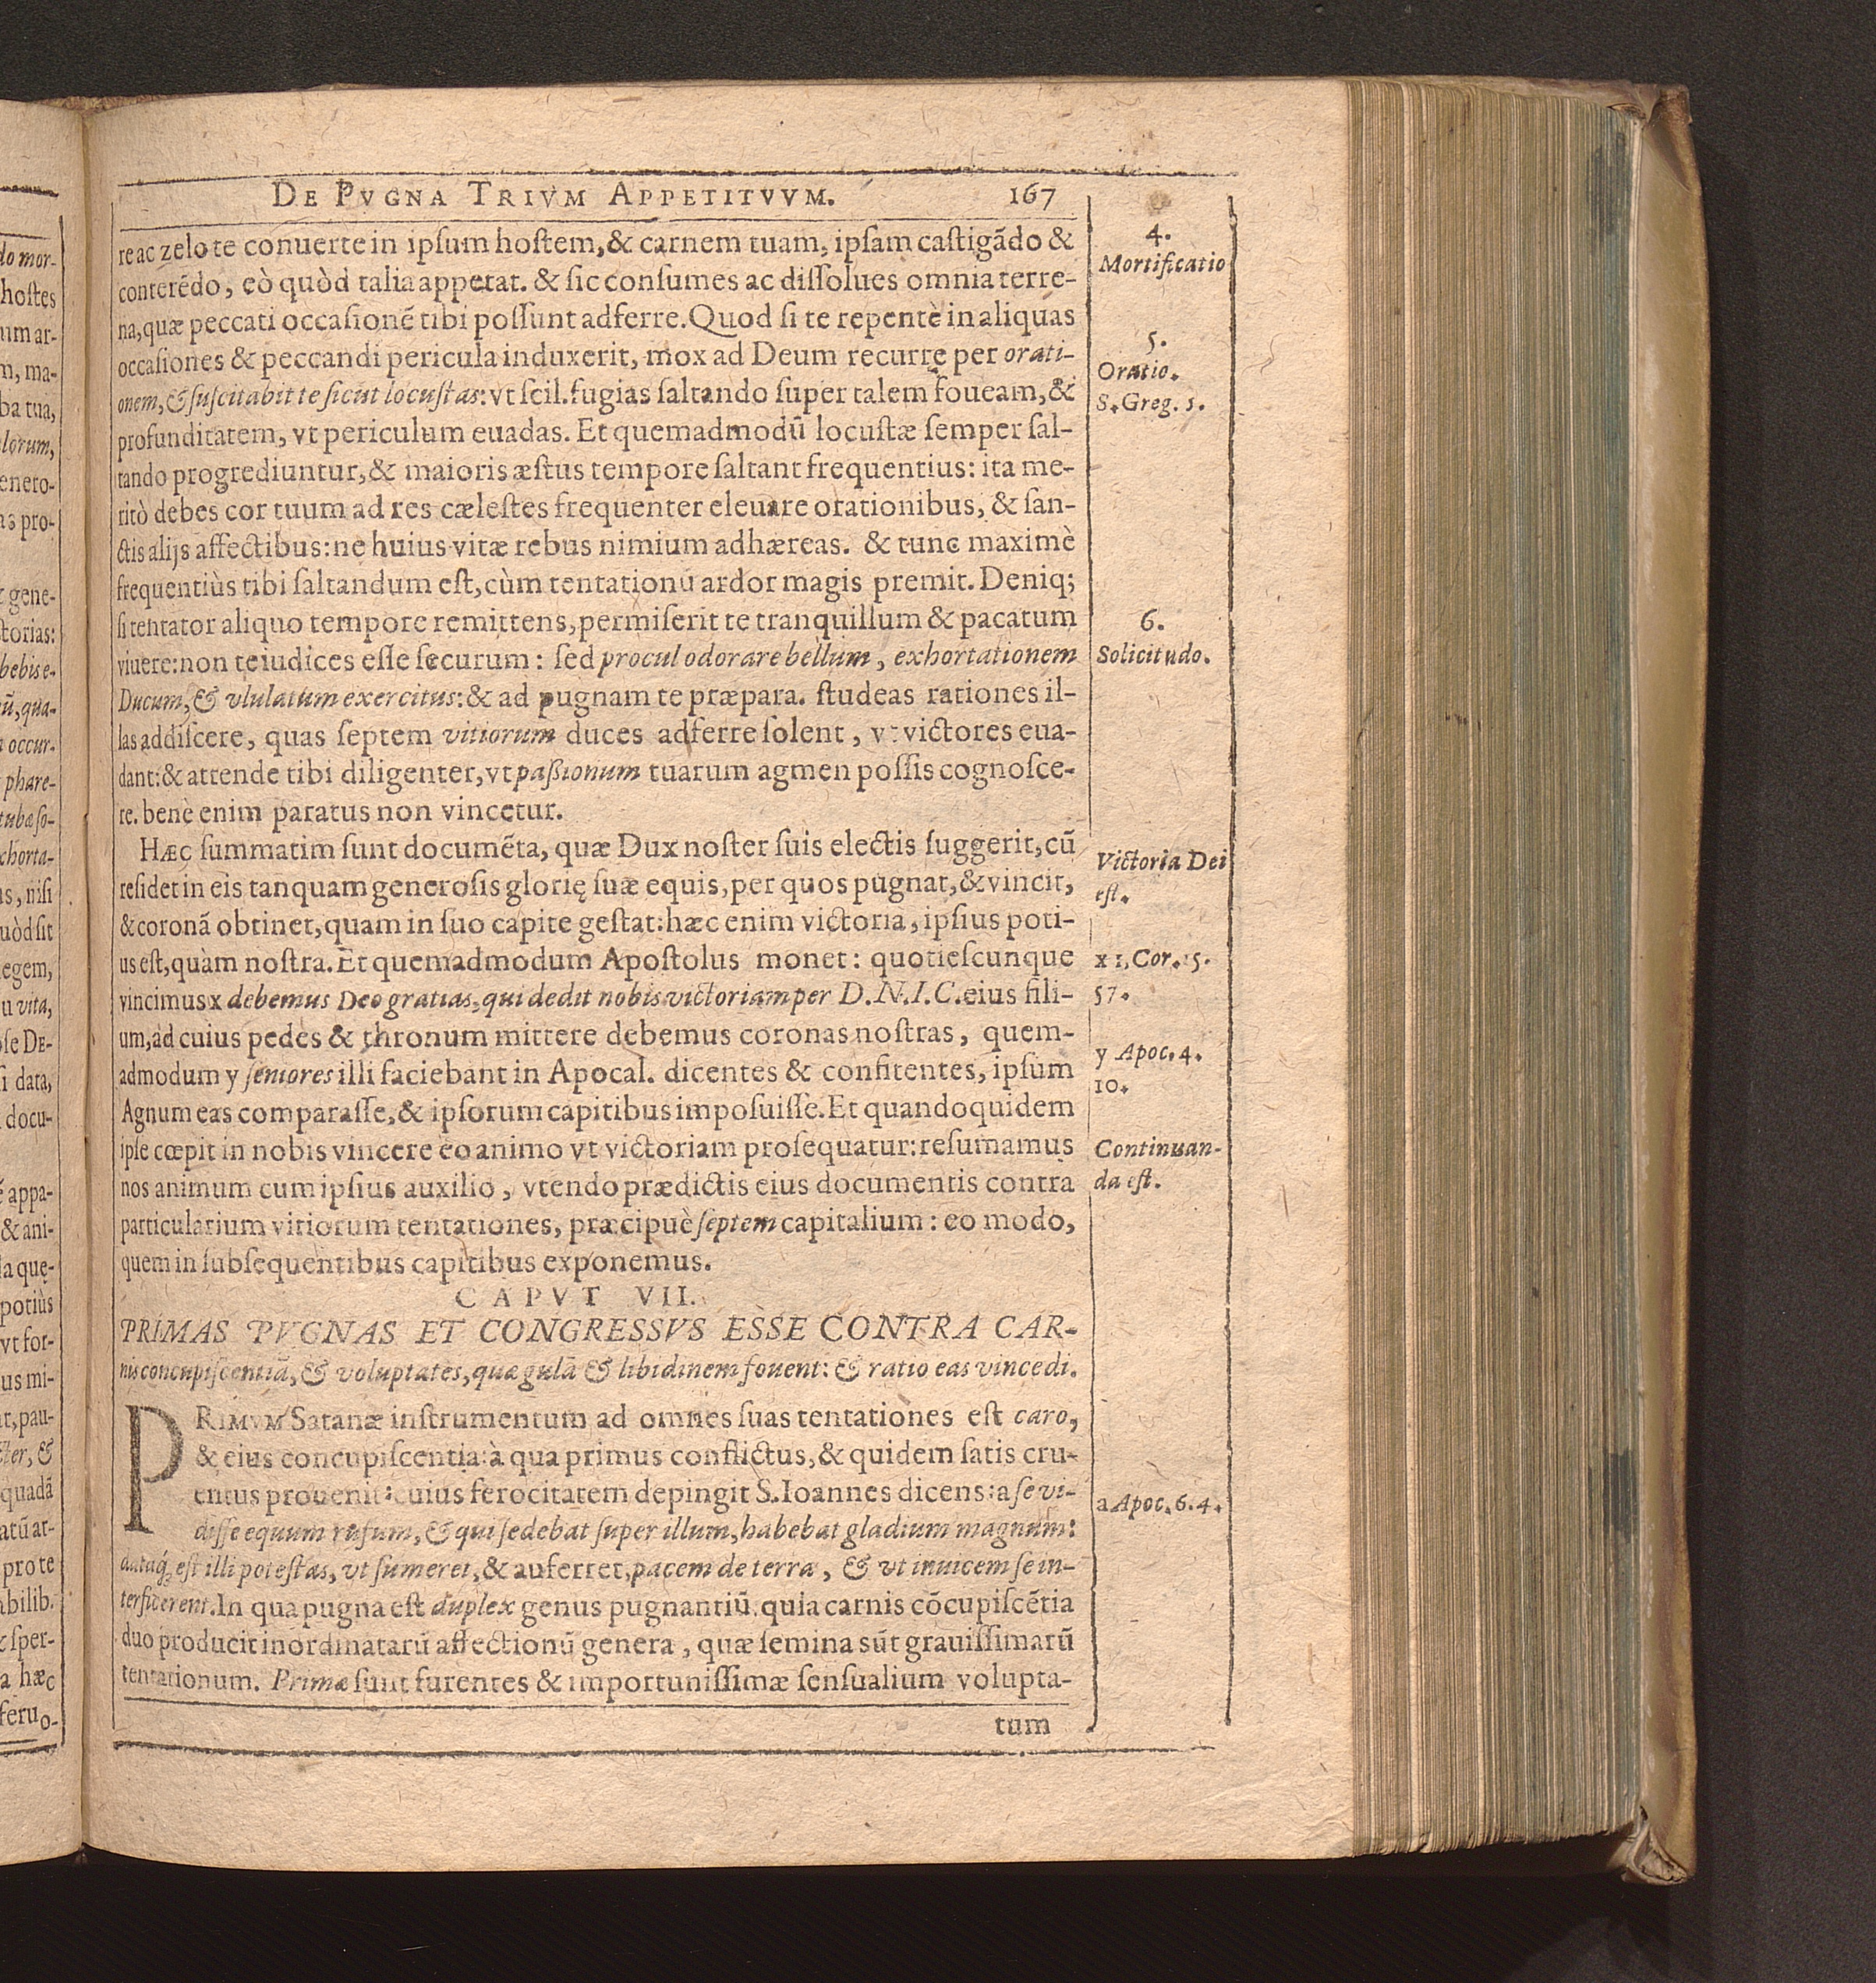 DE PVGNA TRIVM APPETITVVM. 167
re ac zelo te conuerte in ipsum hostem, & carnem tuam, ipsam castigãdo &
conterẽdo, eò quòd talia appetat. & sic consumes ac dissolues omnia terre-
na, quæ peccati occasionẽ tibi possunt adferre. Quod si te repentè in aliquas
occasiones & peccandi pericula induxerit, mox ad Deum recurre per orati-
onem, & suscitabit te sicut locustas: vt scil. fugias saltando super talem foueam, &
profunditatem, vt periculum euadas. Et quemadmodũ locustæ semper sal-
tando progrediuntur, & maioris æstus tempore saltant frequentius: ita me-
ritò debes cor tuum ad res cælestes frequenter eleuare orationibus, & san-
ctis alijs affectibus: ne huius vitæ rebus nimium adhæreas. & tunc maximè
frequentiùs tibi saltandum est, cùm tentationũ ardor magis premit. Deniq;
si tentator aliquo tempore remittens, permiserit te tranquillum & pacatum
viuere: non te iudices esse securum: sed procul odorare bellum, exhortationem
Ducum, & vlulatum exercitus: & ad pugnam te præpara. studeas rationes il-
las addiscere, quas septem vitiorum duces adferre solent, vt victores eua-
dant: & attende tibi diligenter, vt passionum tuarum agmen possis cognosce-
re. benè enim paratus non vincetur.
HÆC summatim sunt documẽta, quæ Dux noster suis electis suggerit, cũ
residet in eis tanquam generosis glorię suæ equis, per quos pugnat, & vincit,
& coronã obtinet, quam in suo capite gestat: hæc enim victoria, ipsius poti-
us est, quàm nostra. Et quemadmodum Apostolus monet: quotiescunque
vincimus x debemus Deo gratias, qui dedit nobis victoriam per D. N. I. C. eius fili-
um, ad cuius pedes & thronum mittere debemus coronas nostras, quem-
admodum y seniores illi faciebant in Apocal. dicentes & confitentes, ipsum
Agnum eas comparasse, & ipsorum capitibus imposuisse. Et quandoquidem
ipse cœpit in nobis vincere eo animo vt victoriam prosequatur: resumamus
nos animum cum ipsius auxilio, vtendo prædictis eius documentis contra
particularium vitiorum tentationes, præcipuè septem capitalium: eo modo,
quem in subsequentibus capitibus exponemus.
CAPVT VII.
PRIMAS PVGNAS ET CONGRESSVS ESSE CONTRA CAR-
nis concupiscentiã, & voluptates, quæ gulã & libidinem fouent: & ratio eas vincedi.
PRIMVM Satanæ instrumentum ad omnes suas tentationes est caro,
& eius concupiscentia: à qua primus conflictus, & quidem satis cru-
entus prouenit: cuius ferocitatem depingit S. Ioannes dicens: a se vi-
disse equum rufum, & qui sedebat super illum, habebat gladium magnum:
dataq́; est illi potestas, vt sumeret, & auferret, pacem de terra, & vt inuicem se in-
terficerent. In qua pugna est duplex genus pugnantiũ. quia carnis cõcupiscẽtia
duo producit inordinatarũ affectionũ genera, quæ semina sũt grauissimarũ
tentationum. Primæ sunt furentes & importunissimæ sensualium volupta-
tum
4.
Mortificatio
5.
Oratio.
S. Greg. s.
6.
Solicitudo.
Victoria Dei
est.
x 1. Cor. 15.
57.
y Apoc. 4.
10.
Continuan-
da est.
a Apoc. 6. 4.
do mor-
hostes
um ar-
m, ma-
ba tua,
lorum,
eneto-
ns pro-
gene-
storias:
bebis e-
ũ, qua-
occur-
phare-
tubæ so-
xhorta-
is, nisi
uòd sit
legem,
u vita,
ose DE-
si data,
docu-
appa-
& ani-
la quę-
potiùs
vt for-
us mi-
t, pau-
cter, &
quadã
atũ ar-
pro te
abilib.
& sper-
a hæc
feruo-